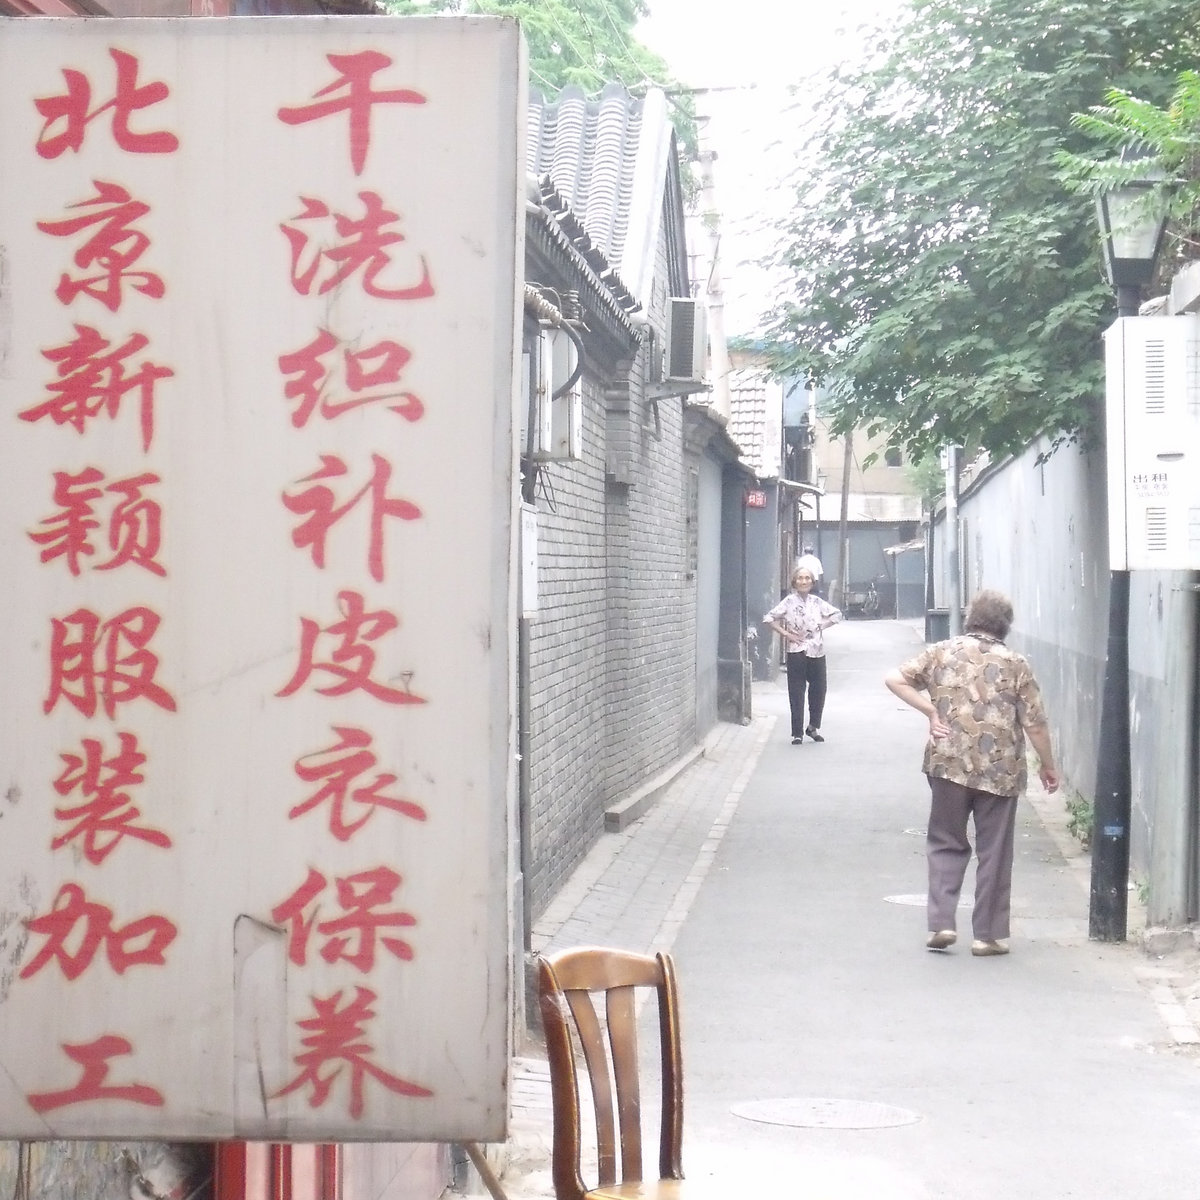 干洗织补皮衣保养
北京新颖服装加工
出租